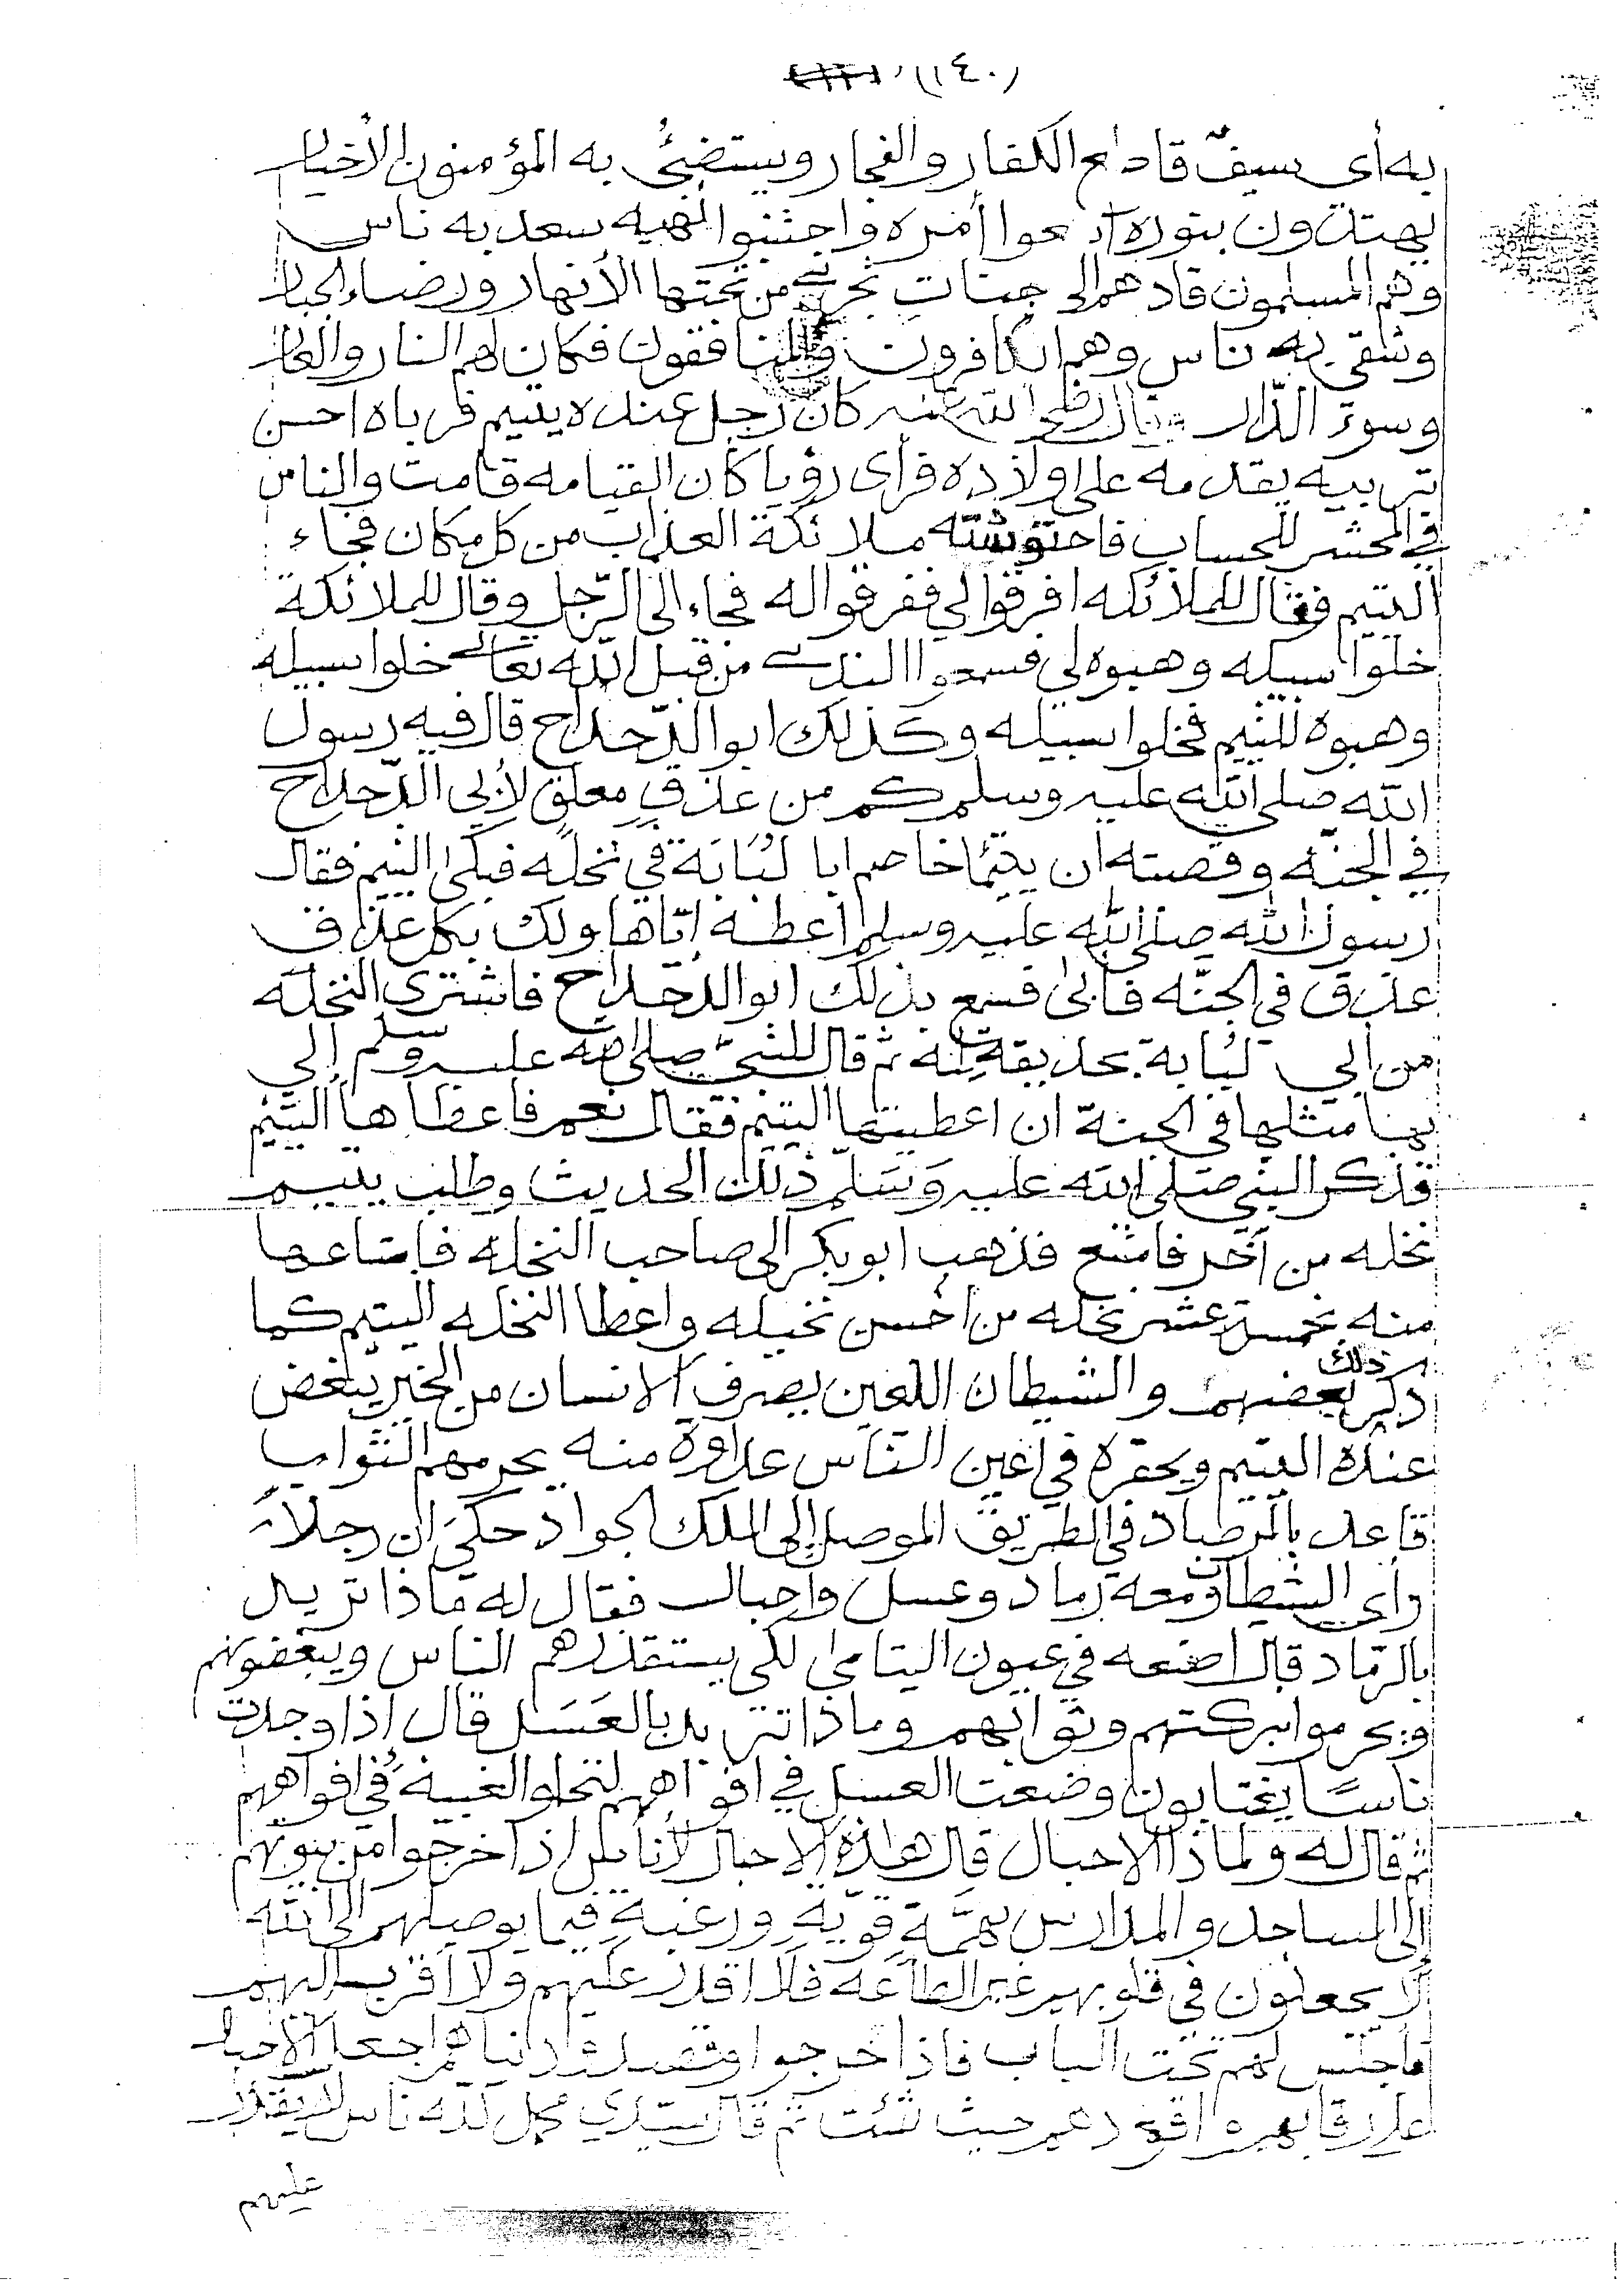 (١٤٠)
به أى سيفٌ قاطع الكفار والفجار ويستضئُ به المؤمنون الأخيار
يهتدون بنوره اتبعوا أمره واجتنبوا نهيه سعد به ناس
وهم المسلمون قادهم الى جنات تجرى من تحتها الأنهار ورضاء الجبار
وشقى به ناس وهم الكافرون والمنافقون فكان لهم النار والعار
وسوء الدّار قال رضى الله عنه كان رجل عنده يتيم فرباه احسن
تربيه يقدمه على اولاده فرأى رؤيا كأن القيامه قامت والناس
في المحشر للحساب فاحتوشته ملائكة العذاب من كل مكان فجاء
اليتيم فقال للملائكه افرقوا لي ففرقوا له فجاء الى الرّجل وقال للملائكة
خلوا سبيله وهبوه لى فسمعوا الندى من قبل الله تعالى خلوا سبيله
وهبوه لليتيم فخلوا سبيله وكذلك ابو الدّحداح قال فيه رسول
الله صلى الله عليه وسلم كم من عذقٍ معلق لأبي الدّحداح
في الجنّه وقصته ان يتيمًا خاصم ابا لُبَابَة في نخلَه فبكى اليتيم فقال
رسول الله صلى الله عليه وسلم اعطه ايّاها ولك بكل عذق
عذق في الجنّه فأبى فسمع بذلك ابو الدّحداح فاشترى النخله
من ابي لُبابة بحديقة له ثم قال للنبيّ صلى الله عليه وسلم إلي
بها مثلها في الجنة ان اعطيتها اليتيم فقال نعم فاعطاها اليتيم
فذكر النبي صلى الله عليه وَسَلّم ذلك الحديث وطلب يتيم
نخله من آخر فامتنع فذهب ابوبكر الى صاحب النخله فابتاعها
منه بخمسة عشر نخله من احسن نخيله واعطا النخله اليتيم كما
ذكر ذلك بعضهم والشيطان اللعين يصرف الانسان من الخير يبغض
عنده اليتيم ويحقره في اعين النّاس عداوة منه يحرمهم الثواب
قاعد بالمرصاد في الطريق الموصل إلى الملك الجواد حكى ان رجلاً
رأى الشيطان ومعه رماد وعسل واحبال فقال له ماذا تريد
بالرّماد قال اضعه في عيون اليتامى لكى يستقذرهم الناس ويبغضونهم
ويحرموا بركتهم وثوابهم وماذا تريد بالعَسَل قال اذا وجدت
ناسًا يغتابون وضعت العسل في افواههم لتحلو الغيبة في افواههم
ثم قال له ولماذا الاحبال قال هذه الاحبال لأناس اذا خرجوا من بيوتهم
إلى المساجد والمدارس بهمَّةٍ قويّةٍ ورغبةٍ فيما يوصلهم الى الله
لا يجعلون في قلوبهم غير الطاعه فلا اقدر عليهم ولا اقرب اليهم
فأجلس لهم تحت الباب فاذا خرجوا وقصدوا دنياهم اجعل الاحبال
على رقابهم واقودهم حيث شئت ثم قال سيدي كمل لله ناس لا يقدر
عليهم